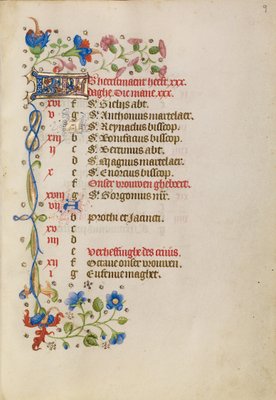 9
heeft xxx.
daghe Die mane xxx.
xvi f S. Gielijs abt.
v g S. Anthonius martelaer.
S. Reynactus bisscop.
xiii b S. Bonifacius bisscop.
ii c S. Bertinus abt.
d S. Magnus martelaer.
x e S. Enortius bisscop.
f Onser vrouwen gheboert.
xviii g S. Gorgonius
vii
b Prothi et Jacincti.
xv c
iiii d
e Verheffinghe des cruus.
xii f Octave onser vrouwen.
i g Eufemie maghet.